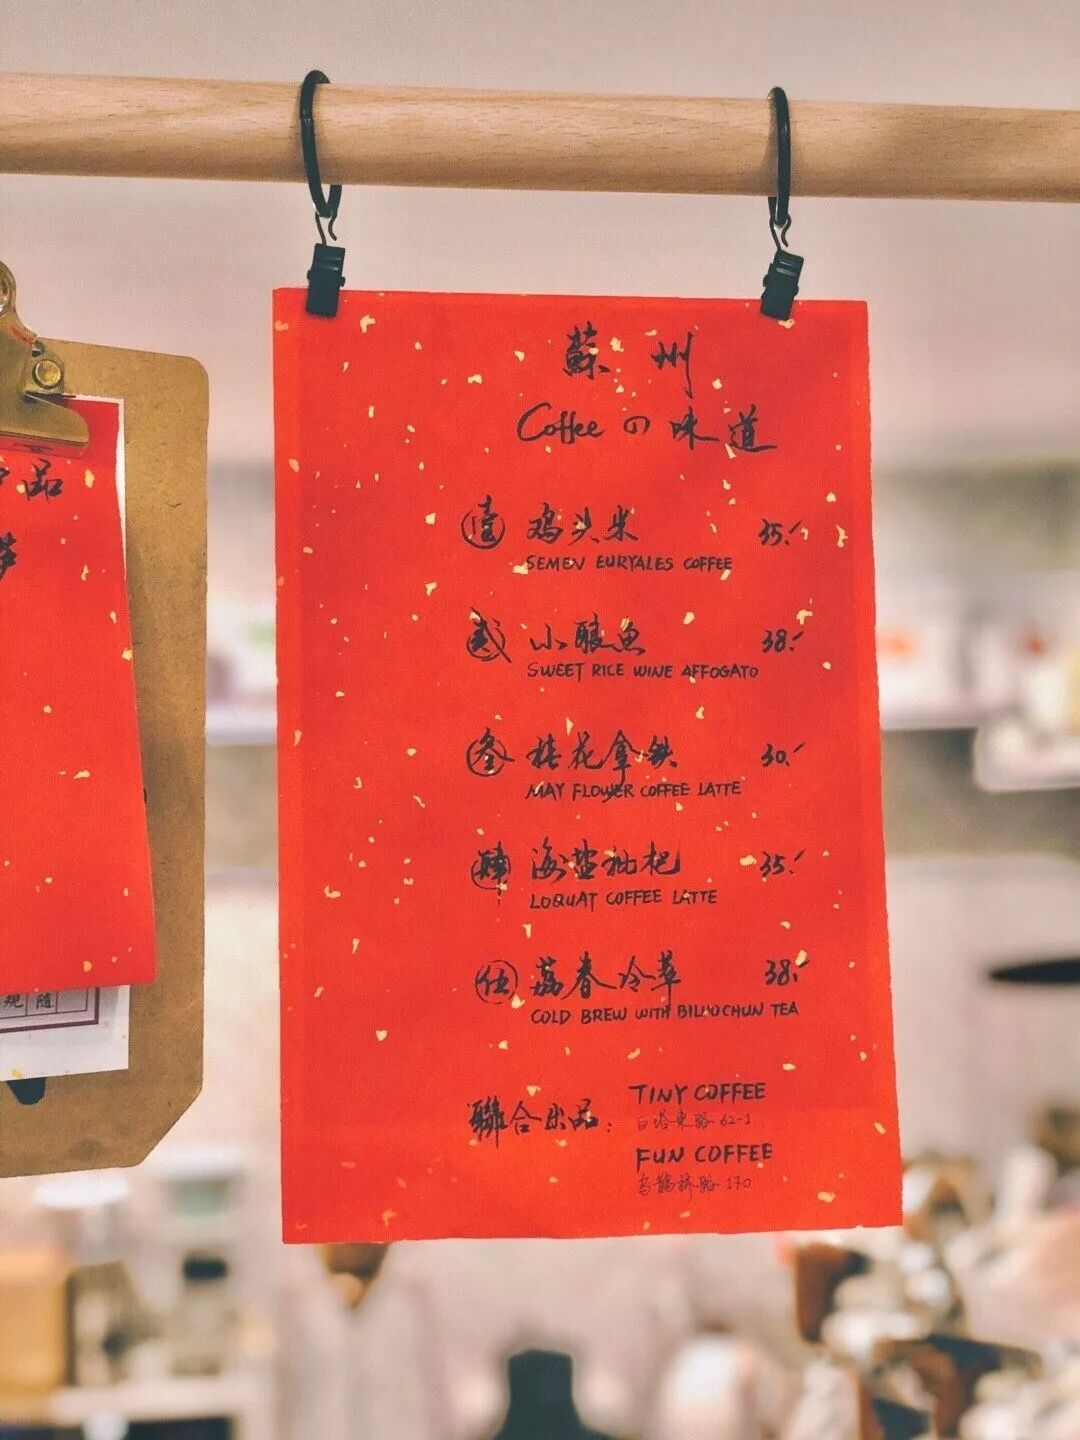 蘇州
Coffeeの味道
壹 鸡头米 35.-
SEMEN EURYALES COFFEE
贰 小酿鱼 38.-
SWEET RICE WINE AFFOGATO
叁 桂花拿铁 30.-
MAY FLOWER COFFEE LATTE
肆 海盐枇杷 35.-
LOQUAT COFFEE LATTE
伍 荔春冷萃 38.-
COLD BREW WITH BILUOCHUN TEA
聯合出品:
TINY COFFEE
白塔東路 62-1
FUN COFFEE
乌鹊桥路 170
品
规 随